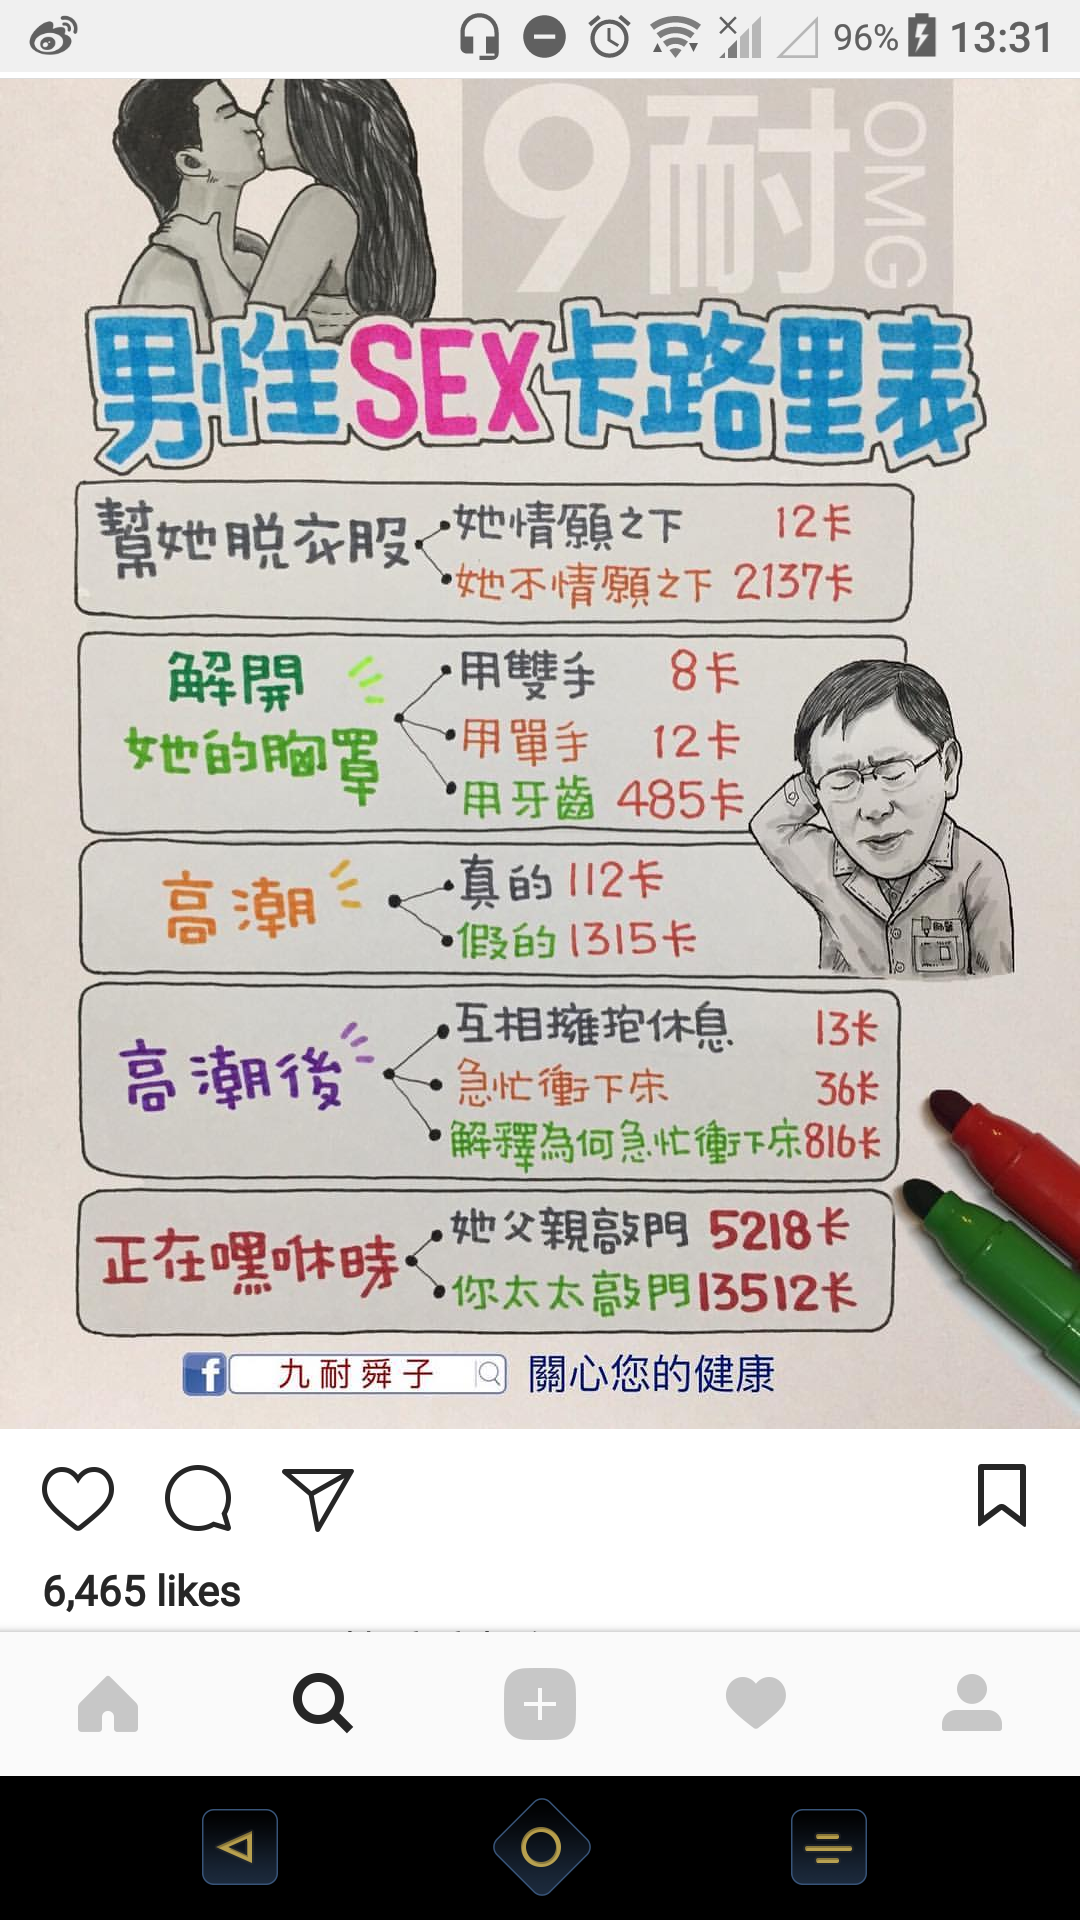 96% 13:31
9耐 OMG
男性SEX卡路里表
幫她脫衣服
她情願之下 12卡
她不情願之下 2137卡
解開
她的胸罩
用雙手 8卡
用單手 12卡
用牙齒 485卡
高潮
真的 112卡
假的 1315卡
高潮後
互相擁抱休息 13卡
急忙衝下床 36卡
解釋為何急忙衝下床 816卡
正在嘿咻時
她父親敲門 5218卡
你太太敲門 13512卡
f 九耐舜子 關心您的健康
6,465 likes